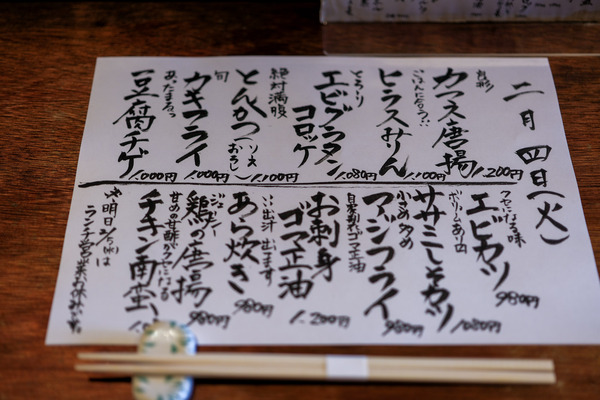 二月四日(火)
カマス唐揚
1,200円
ごはんに合う
ヒラスみりん
1,100円
とろ〜り
エビグラタン
コロッケ
1,080円
絶対満腹
とんかつ(ソース おろし)
1,100円
旬
カキフライ
1,000円
あったまるっ
豆腐チゲ
1,000円
クセになる味
エビカツ
980円
ボリュームあり
ササミしそカツ
1,080円
小さめ多め
アジフライ
980円
自家製ゴマ正油
お刺身
ゴマ正油
1,200円
いい出汁出てます
あら炊き
980円
ジューシー
鶏の唐揚
980円
甘めの甘酢がクセになる
チキン南蛮
※明日2/5(水)は
ランチ営業お休みです